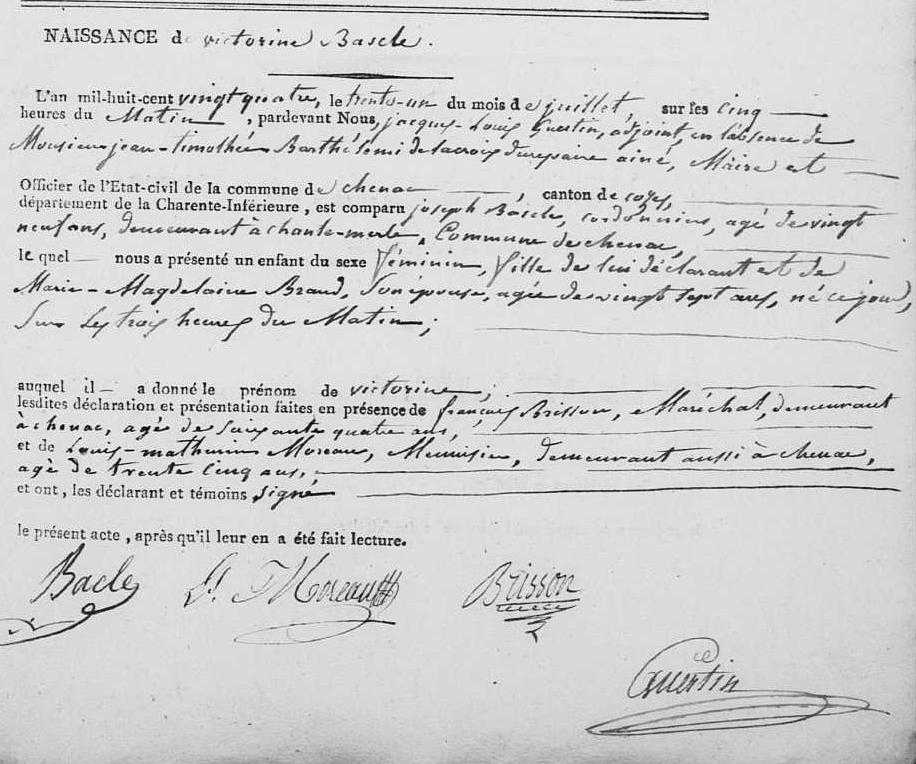 NAISSANCE de victorine Bascle.
L'an mil-huit-cent vingt quatre, le trente-un du mois de juillet, sur les cinq
heures du Matin, pardevant Nous, jacques-Louis Guertin, adjoint, en l'absence de
Monsieur jean-timothée Barthélemi delacroix durepaire ainé, Maire et
Officier de l'Etat-civil de la commune de chenac, canton de cozes,
département de la Charente-Inférieure, est comparu joseph Bascle, cordonnier, agé de vingt
neuf ans, demeurant à chante-merle, Commune de chenac,
le quel nous a présenté un enfant du sexe féminin, fille de lui déclarant et de
Marie-Magdelaine Braud, son epouse, agée de vingt sept ans, né ce jour,
Sur Les trois heures du Matin;
auquel il a donné le prénom de victorine;
lesdites déclaration et présentation faites en présence de françois Brisson, Maréchal, demeurant
à chenac, agé de Soixante quatre ans,
et de Louis-mathurin Moreau, Menuisier, demeurant aussi à chenac,
agé de trente Cinq ans,
et ont, les déclarant et témoins signé
le présent acte, après qu'il leur en a été fait lecture.
Bacle L. Moreau Brisson
Guertin